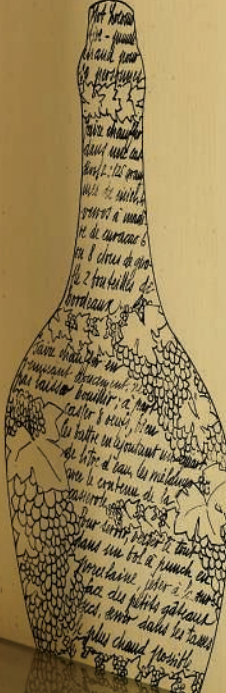 Hot bordeau
chaud pour
personnes
Faire chauffer
dans une cas
verres à madè
re de curaçao 6
ou 8 clous de giro
fle 2 bouteilles de
bordeaux
Faire chauffer en
remuant doucement, ne
pas laisser bouillir, à part
casser 8 oeufs, bien
les battre en ajoutant un quart
de litre d'eau, les mélanger
avec le contenu de la
casserole
Pour servir verser le tout
dans un bol à punch, en
porcelaine
des petits gâteaux
secs servir dans les tasses
le plus chaud possible